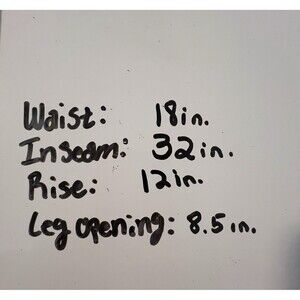 Waist: 18in.
Inseam: 32in.
Rise: 12in.
Leg opening: 8.5in.